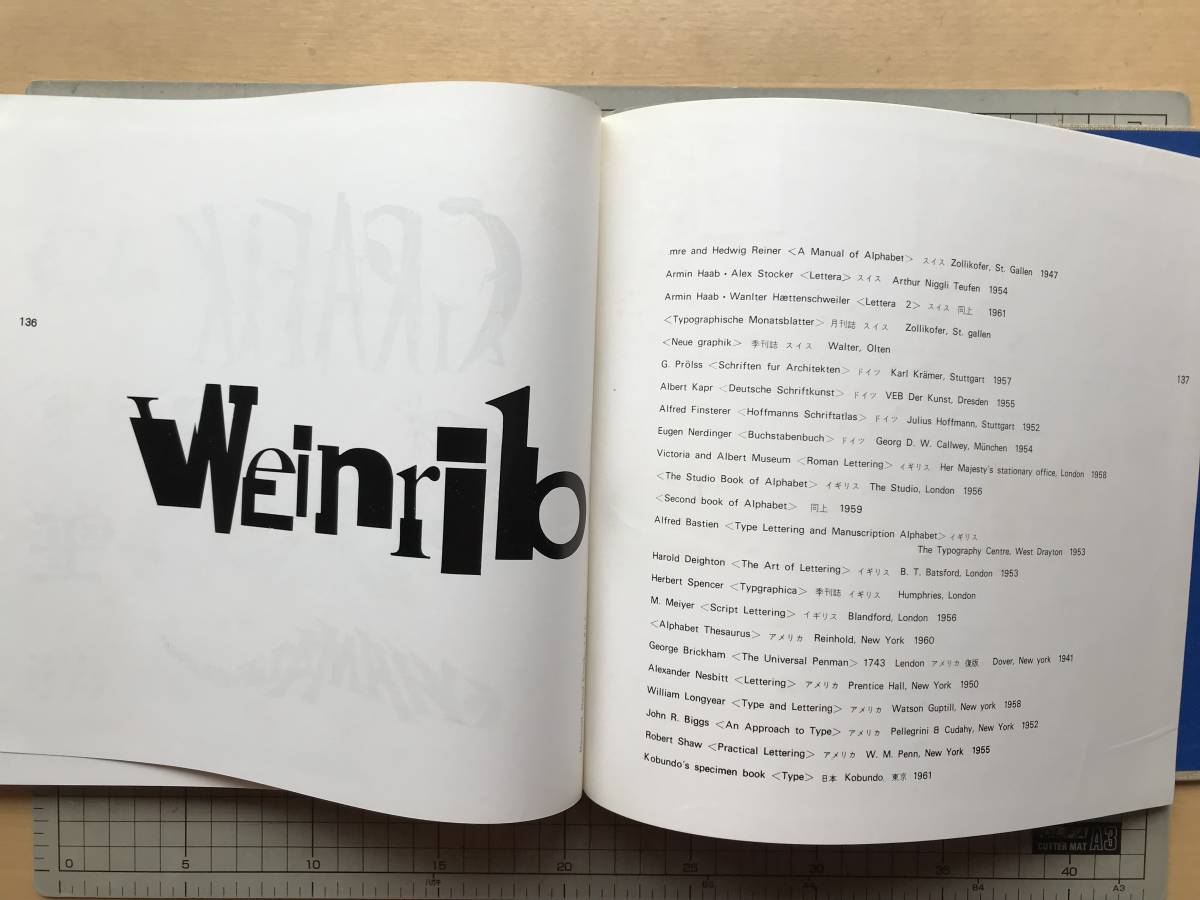 136
Weinrib
mre and Hedwig Reiner <A Manual of Alphabet> スイス Zollikofer, St. Gallen 1947
Armin Haab・Alex Stocker <Lettera> スイス Arthur Niggli Teufen 1954
Armin Haab・Wanlter Hættenschweiler <Lettera 2> スイス 同上 1961
<Typographische Monatsblatter> 月刊誌 スイス Zollikofer, St. gallen
<Neue graphik> 季刊誌 スイス Walter, Olten
137
G. Prölss <Schriften fur Architekten> ドイツ Karl Krämer, Stuttgart 1957
Albert Kapr <Deutsche Schriftkunst> ドイツ VEB Der Kunst, Dresden 1955
Alfred Finsterer <Hoffmanns Schriftatlas> ドイツ Julius Hoffmann, Stuttgart 1952
Eugen Nerdinger <Buchstabenbuch> ドイツ Georg D. W. Callwey, München 1954
Victoria and Albert Museum <Roman Lettering> イギリス Her Majesty's stationary office, London 1958
<The Studio Book of Alphabet> イギリス The Studio, London 1956
<Second book of Alphabet> 同上 1959
Alfred Bastien <Type Lettering and Manuscription Alphabet> イギリス
The Typography Centre, West Drayton 1953
Harold Deighton <The Art of Lettering> イギリス B. T. Batsford, London 1953
Herbert Spencer <Typgraphica> 季刊誌 イギリス Humphries, London
M. Meiyer <Script Lettering> イギリス Blandford, London 1956
<Alphabet Thesaurus> アメリカ Reinhold, New York 1960
George Brickham <The Universal Penman> 1743 Lendon アメリカ 復版 Dover, New york 1941
Alexander Nesbitt <Lettering> アメリカ Prentice Hall, New York 1950
William Longyear <Type and Lettering> アメリカ Watson Guptill, New york 1958
John R. Biggs <An Approach to Type> アメリカ Pellegrini & Cudahy, New York 1952
Robert Shaw <Practical Lettering> アメリカ W. M. Penn, New York 1955
Kobundo's specimen book <Type> 日本 Kobundo, 東京 1961
CUTTER MAT A3
0 5 10 15 20 25 30 35 40
B4 A3